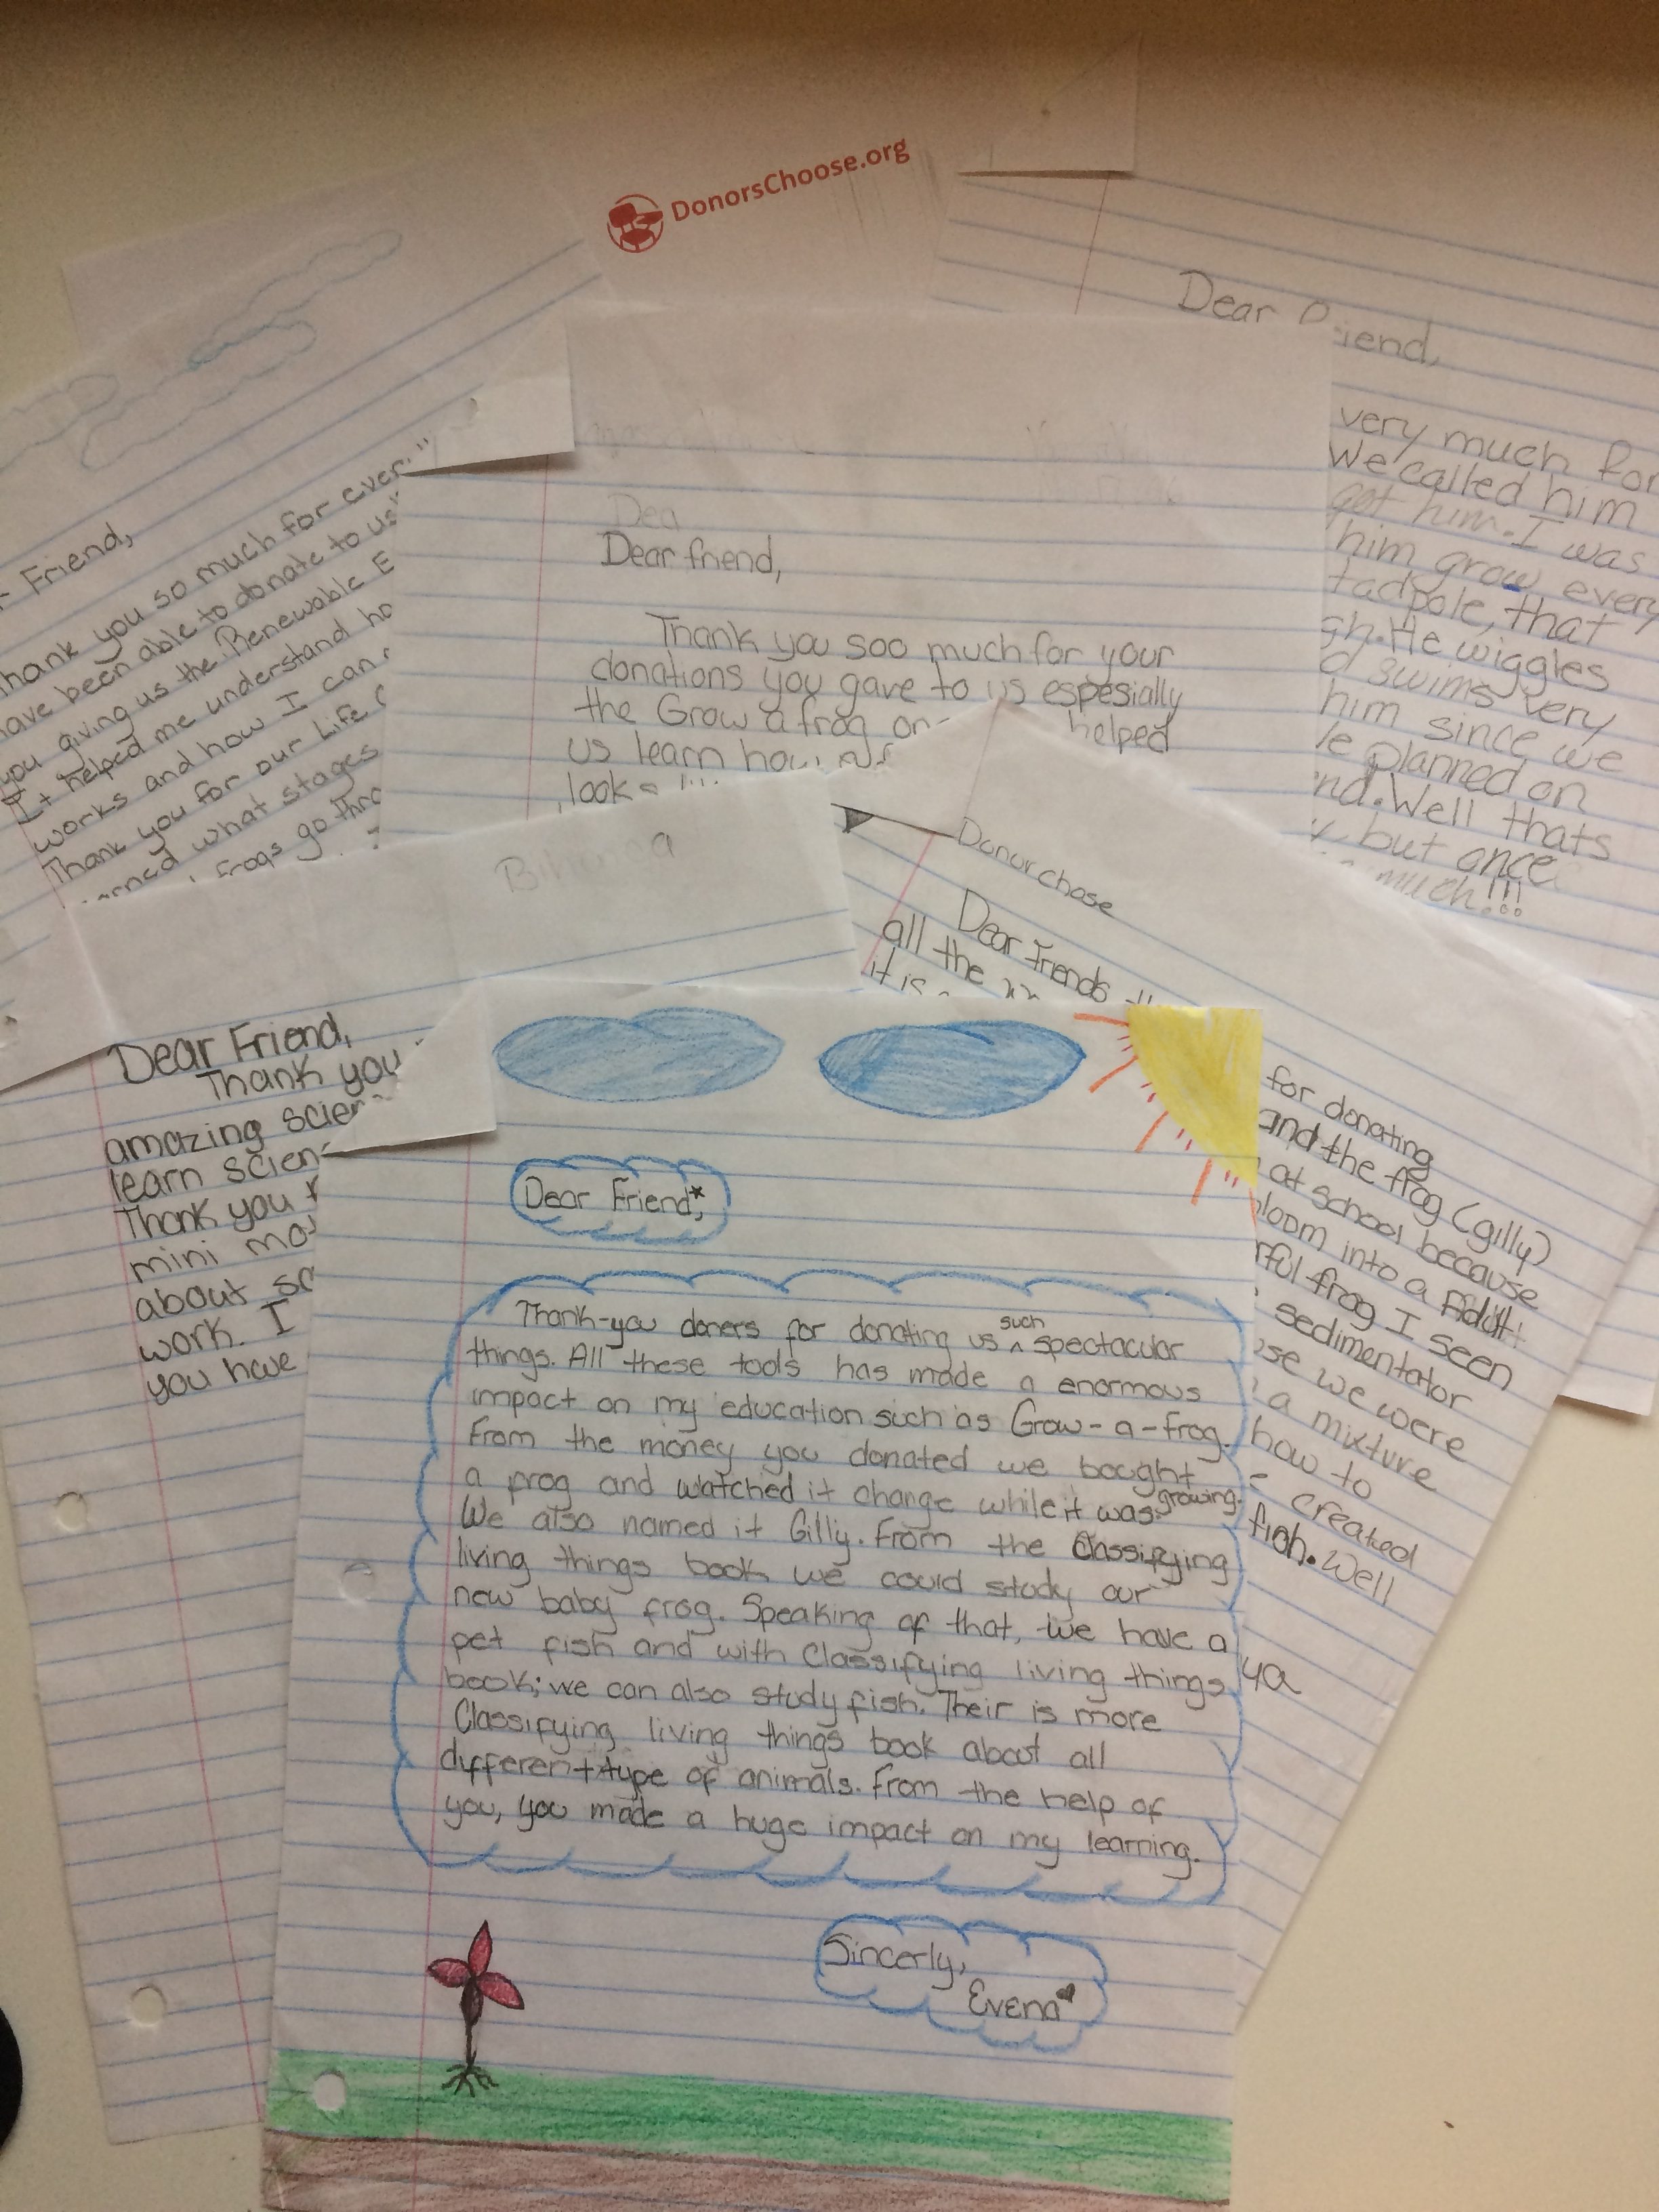 DonorsChoose.org
Friend,
hank you so much for ever
have been able to donate to us
you giving us the Renewable E
It helped me understand ho
works and how I can
Thank you for our Life C
rned what stages
frogs go thro
Dea
Dear friend,
Thank you soo much for your
donations you gave to us espesially
the Grow a frog on helped
us learn how
look
Dear iend,
very much for
We called him
got him. I was
him grow every
tadpole, that
gh. He wiggles
d swims very
him since we
le planned on
nd. Well thats
but once
much!!!
Donor chose
Dear Friends th
all the
it is
for donating
and the frog (gilly)
at school because
bloom into a Adult!
rful frog I seen
sedimentator
ose we were
a mixture
how to
created
fish. Well
ya
Dear Friend,
Thank you
amazing scien
learn scien
Thank you f
mini mo
about sc
work. I
you have
Dear Friend,*
Thank-you doners for donating us such spectacular
things. All these tools has made a enormous
impact on my education such as Grow-a-frog.
From the money you donated we bought
a frog and watched it change while it was growing.
We also named it Gilly. From the Classifying
living things book we could study our
new baby frog. Speaking of that, we have a
pet fish and with Classifying living things
book; we can also study fish. Their is more
Classifying living things book about all
different type of animals. From the help of
you, you made a huge impact on my learning.
Sincerly,
Evena